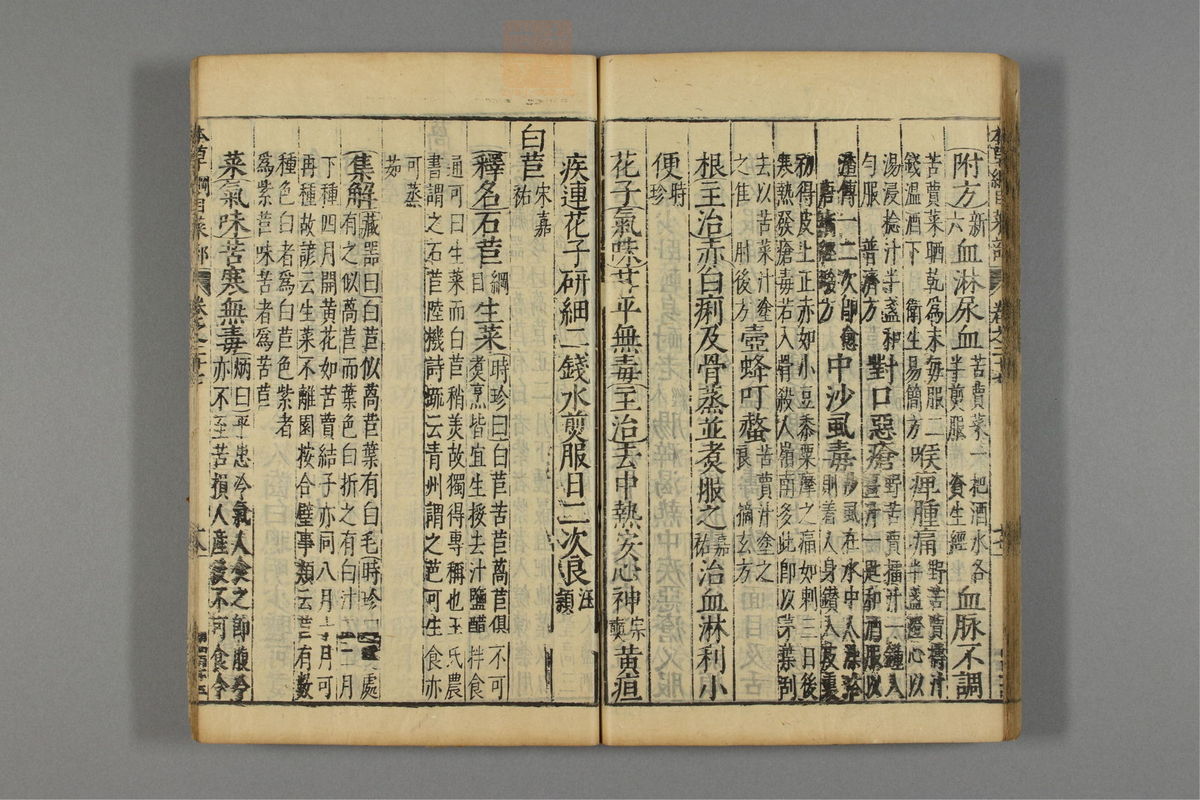 附方新六血淋尿血苦蕒菜一把酒水各半煎服 資生經血脉不調
苦蕒菜晒乾爲末每服二錢温酒下 衛生易簡方喉痺腫痛野苦蕒擣汁半盞燈心以
湯浸捻汁半盞和勻服 普濟方對口惡瘡野苦蕒擂汁一鍾入薑汁一匙和酒服以
渣傅一二次卽愈 唐瑤經驗方中沙虱毒沙虱在水中人澡浴則着人身鑽入皮裏
初得皮上正赤如小豆黍粟摩之痛如刺三日後寒熱發瘡毒若入骨殺人嶺南多此卽以茅葉刮
去以苦菜汁塗之佳 肘後方壺蜂叮螫苦蕒汁塗之良 摘玄方
根主治赤白痢及骨蒸並煑服之嘉祐治血淋利小
便時珍
花子氣味甘平無毒主治去中熱安心神宗奭黄疸
疾連花子研細二錢水煎服日二次良汪頴
白苣宋嘉祐
釋名石苣綱目生菜時珍曰白苣苦苣萵苣俱不可煑烹皆宜生挼去汁鹽醋拌食
通可曰生菜而白苣稍美故獨得專稱也王氏農書謂之石苣陸機詩疏云青州謂之芑可生食亦
可蒸茹
集解藏器曰白苣似萵苣葉有白毛時珍曰處處有之似萵苣而葉色白折之有白汁二月
下種四月開黄花如苦蕒結子亦同八月十月可再種故諺云生菜不離園按合璧事類云苣有數
種色白者爲白苣色紫者爲紫苣味苦者爲苦苣
菜氣味苦寒無毒炳曰平患冷氣人食之卽腹冷亦不至苦損人産後不可食令
本草綱目菜部 卷之二十七